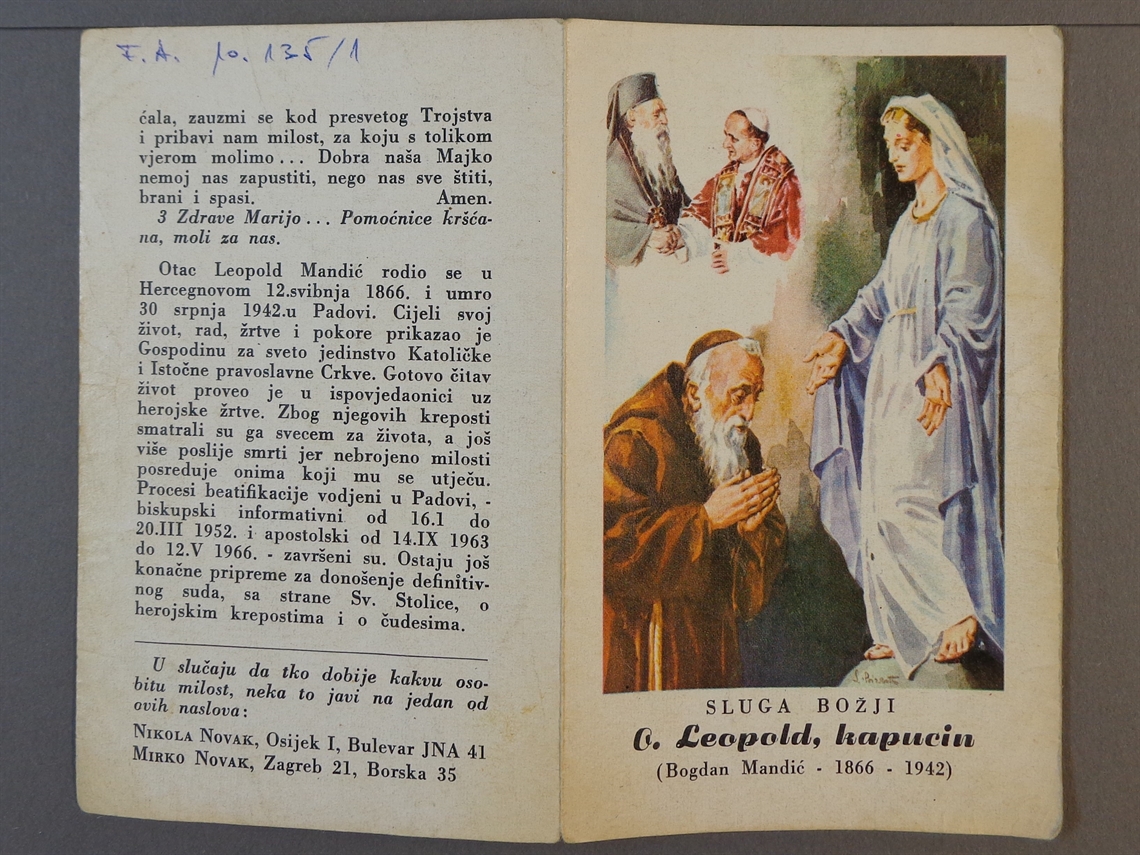 F. A. po. 135/1
ćala, zauzmi se kod presvetog Trojstva
i pribavi nam milost, za koju s tolikom
vjerom molimo ... Dobra naša Majko
nemoj nas zapustiti, nego nas sve štiti,
brani i spasi. Amen.
3 Zdrave Marijo ... Pomoćnice kršća-
na, moli za nas.
Otac Leopold Mandić rodio se u
Hercegnovom 12.svibnja 1866. i umro
30 srpnja 1942.u Padovi. Cijeli svoj
život, rad, žrtve i pokore prikazao je
Gospodinu za sveto jedinstvo Katoličke
i Istočne pravoslavne Crkve. Gotovo čitav
život proveo je u ispovjedaonici uz
herojske žrtve. Zbog njegovih kreposti
smatrali su ga svecem za života, a još
više poslije smrti jer nebrojeno milosti
posreduje onima koji mu se utječu.
Procesi beatifikacije vodjeni u Padovi, -
biskupski informativni od 16.1 do
20.III 1952. i apostolski od 14.IX 1963
do 12.V 1966. - završeni su. Ostaju još
konačne pripreme za donošenje definitiv-
nog suda, sa strane Sv. Stolice, o
herojskim krepostima i o čudesima.
U slučaju da tko dobije kakvu oso-
bitu milost, neka to javi na jedan od
ovih naslova:
NIKOLA NOVAK, Osijek I, Bulevar JNA 41
MIRKO NOVAK, Zagreb 21, Borska 35
SLUGA BOŽJI
O. Leopold, kapucin
(Bogdan Mandić - 1866 - 1942)